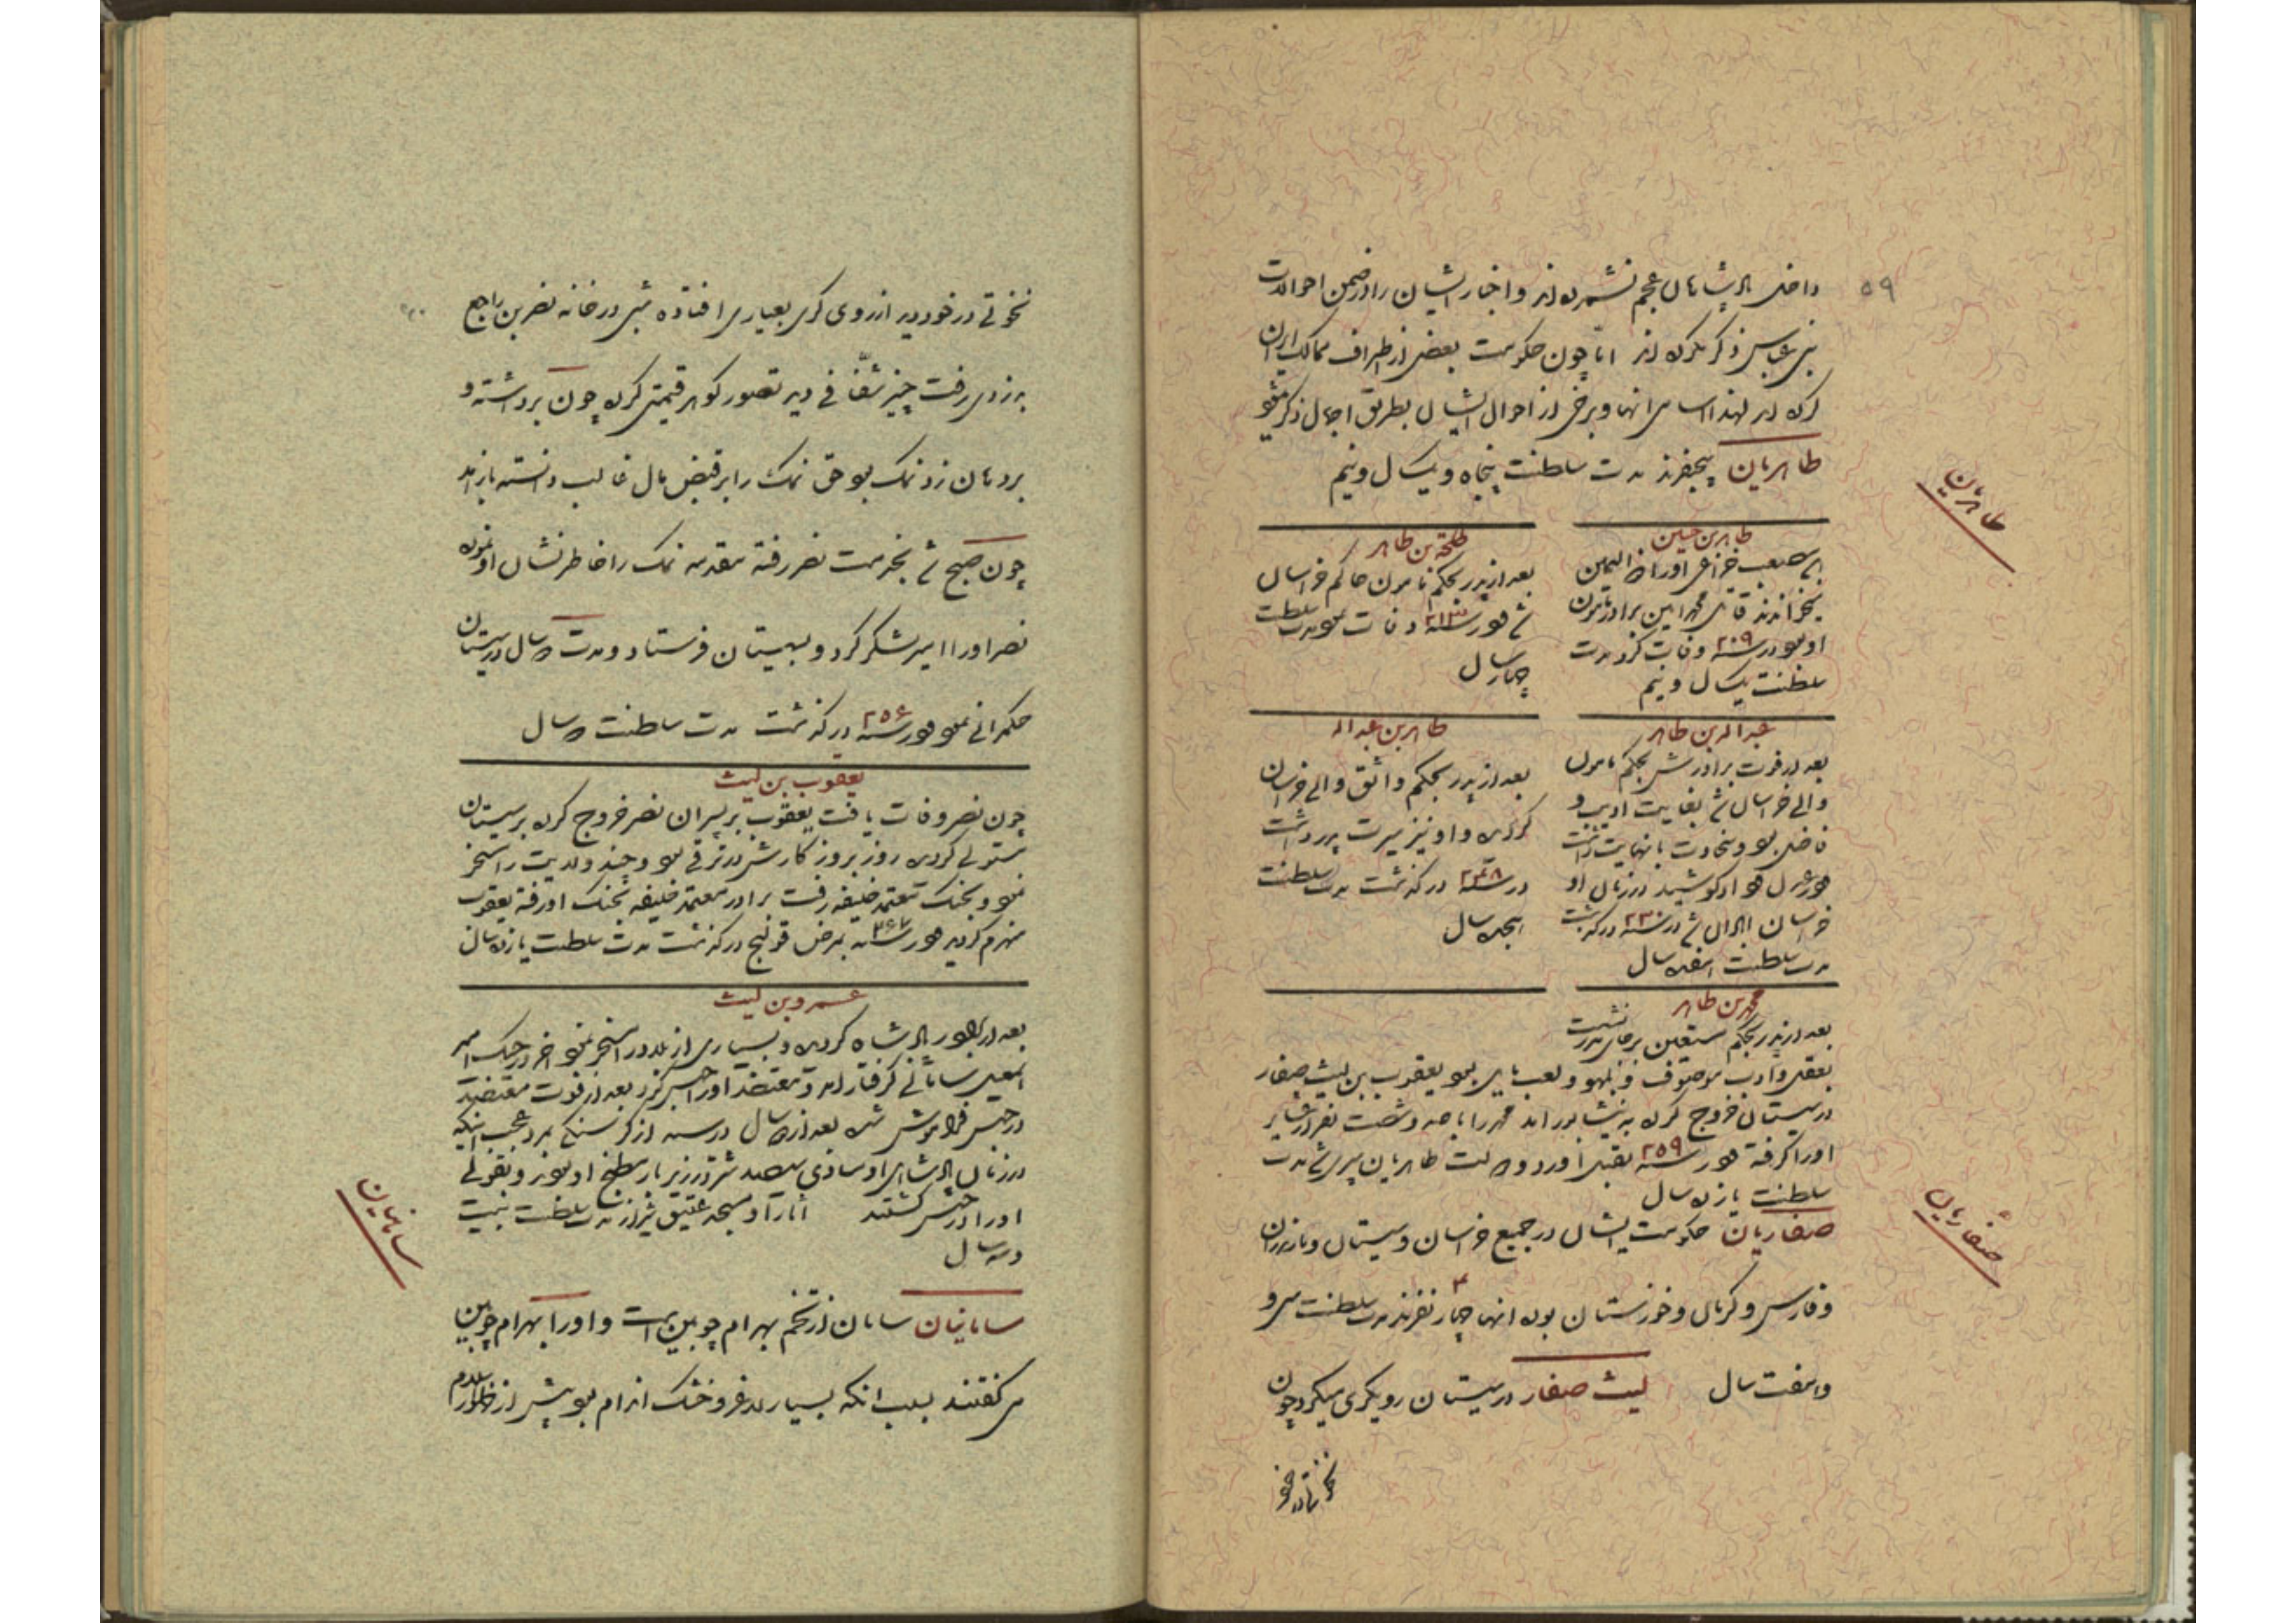 ۵۹
داخل پادشاهان عجم نشمرده‌اند و اخبار ایشان را در ضمن احوالات
بنی عباس ذکر کرده‌اند اما چون حکومت بعضی از اطراف ممالک ایران
کرده‌اند لهذا اسامی انها و برخی از احوال ایشان بطریق اجمال ذکر میشود
طاهریان پنجنفرند مدت سلطنت پنجاه و یکسال و نیم
طاهریان
طاهر بن حسین
بن مصعب خزاعی او را ذوالیمین
میخواندند قاتل محمد امین برادر مامون
او بود در سنه ۲۰۹ وفات کرد مدت
سلطنت یکسال و نیم
طلحة بن طاهر
بعد از پدر بحکم مامون حاکم خراسان
شد و در سنه ۲۱۳ وفات نمود مدت سلطنت
چهار سال
عبداله بن طاهر
بعد از فوت برادرش بحکم مامون
والی خراسان شد بغایت ادیب و
فاضل بود و سخاوت بانهایت داشت
و در عدل و داد کوشید در زمان او
خراسان ابادان شد در سنه ۲۳۰ درگذشت
مدت سلطنت هفده سال
طاهر بن عبداله
بعد از پدر بحکم واثق والی خراسان
گردید و او نیز سیرت پدر داشت
در سنه ۲۴۸ درگذشت مدت سلطنت
هیجده سال
محمد بن طاهر
بعد از پدر بحکم مستعین بر جای پدر نشست
بعقل و ادب موصوف و بلهو و لعب مایل بود یعقوب بن لیث صفار
در سیستان خروج کرده به نیشابور امد محمد را با صد و شصت نفر از اقارب
او را گرفته در سنه ۲۵۹ بقتل اورد دولت طاهریان سپری شد مدت
سلطنت یازده سال
صفاریان حکومت ایشان در جمیع خراسان و سیستان و مازندران
صفاریان
و فارس و کرمان و خوزستان بوده انها چهار ۴ نفرند مدت سلطنت سی و
و هفت سال لیث صفار در سیستان رویگری میکرد چون
نخوتی در خود
نخوتی در خود دید از رویگری بعیاری افتاده شبی در خانه نصر بن راجع
بدزدی رفت چیز شفافی دید تصور گوهر قیمتی کرده چون برداشته و
بردهان زد نمک بود حق نمک را بر قبض مال غالب دانسته باز امد
چون صبح شد بخدمت نصر رفته مقدمه نمک را خاطر نشان او نموده
نصر او را امیر لشکر کرد و بسیستان فرستاد و مدت سال در سیستان
حکمرانی نمود و در سنه ۲۵۶ درگذشت مدت سلطنت سال
یعقوب بن لیث
چون نصر وفات یافت یعقوب بر پسران نصر خروج کرده بر سیستان
مستولی گردید روز بروز کارش در ترقی بود و چند ولایت را مسخر
نمود و بجنگ معتمد خلیفه رفت برادر معتمد خلیفه بجنگ او رفته یعقوب
منهزم گردید و در سنه بمرض قولنج درگذشت مدت سلطنت یازده سال
عمرو بن لیث
بعد از برادر پادشاه گردید و بسیاری از بلاد را مسخر نمود اخر در جنگ امیر
اسمعیل سامانی گرفتار امد و معتضد او را حبس کرد بعد از فوت معتضد
در حبس فراموش شد بعد از سال در سنه از گرسنگی بمرد عجب اینکه
در زمان پادشاهی او سیصد شتر در زیر بار مطبخ او بودند و بقولی
او را در حبس کشتند اثار او مسجد عتیق شیراز مدت سلطنت بیست
و سه سال
سامانیان سامان از تخم بهرام چوبین است و او را بهرام چوبین
سامانیان
می گفتند بسبب انکه بسیار لاغر و خشک اندام بود پیش از ظهور اسلام